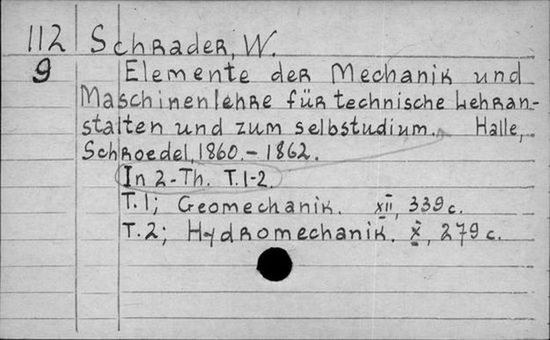 112 Schrader, W.
9 Elemente der Mechanik und
Maschinenlehre für technische Lehran-
stalten und zum selbstudium. Halle,
Schroedel, 1860.-1862.
In 2-Th. T.1-2.
T.1; Geomechanik. XII, 339 c.
T.2; Hydromechanik. X, 279 c.